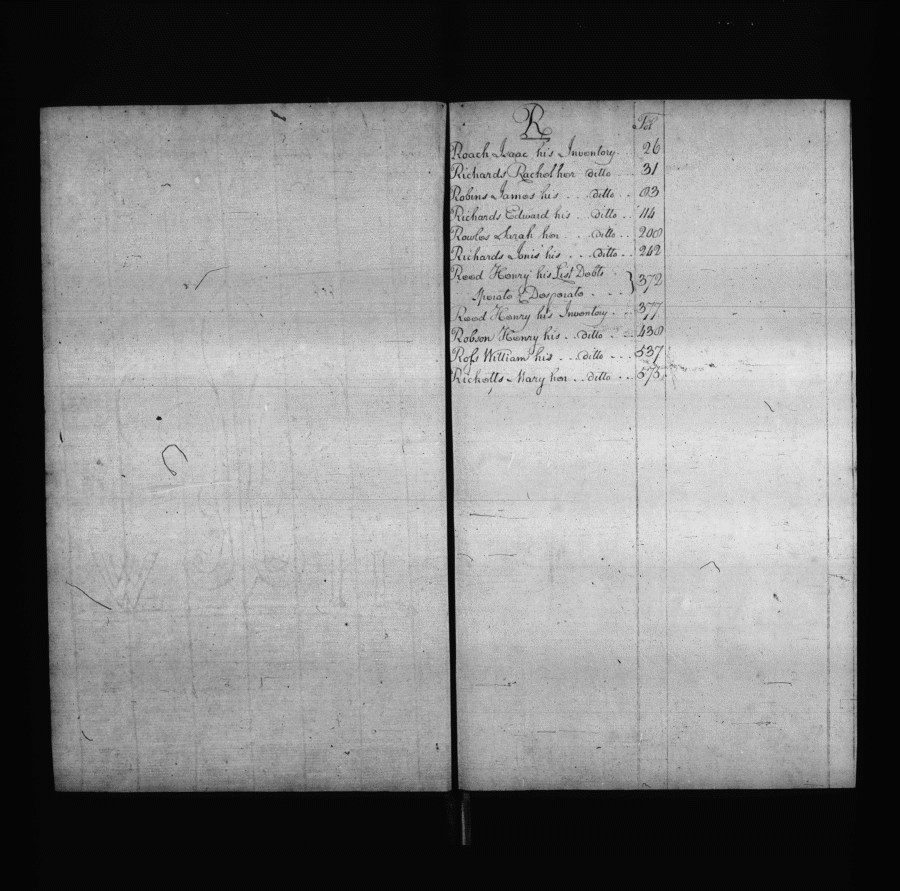 R
Fol
Roach Isaac his Inventory . . 26
Richards Rachel her ditto . . 31
Robins James his . . . ditto . . 83
Richards Edward his . ditto . . 114
Rowles Sarah her . . ditto . . 208
Richards his . . . ditto . . 242
Reed Henry his List Debts
Sperate & Desperate . . . . } 372
Reed Henry his Inventory . . 377
Robson Henry his . . ditto . . 438
Roſs William his . . ditto . . . 537
Ricketts Mary her . . ditto . . .